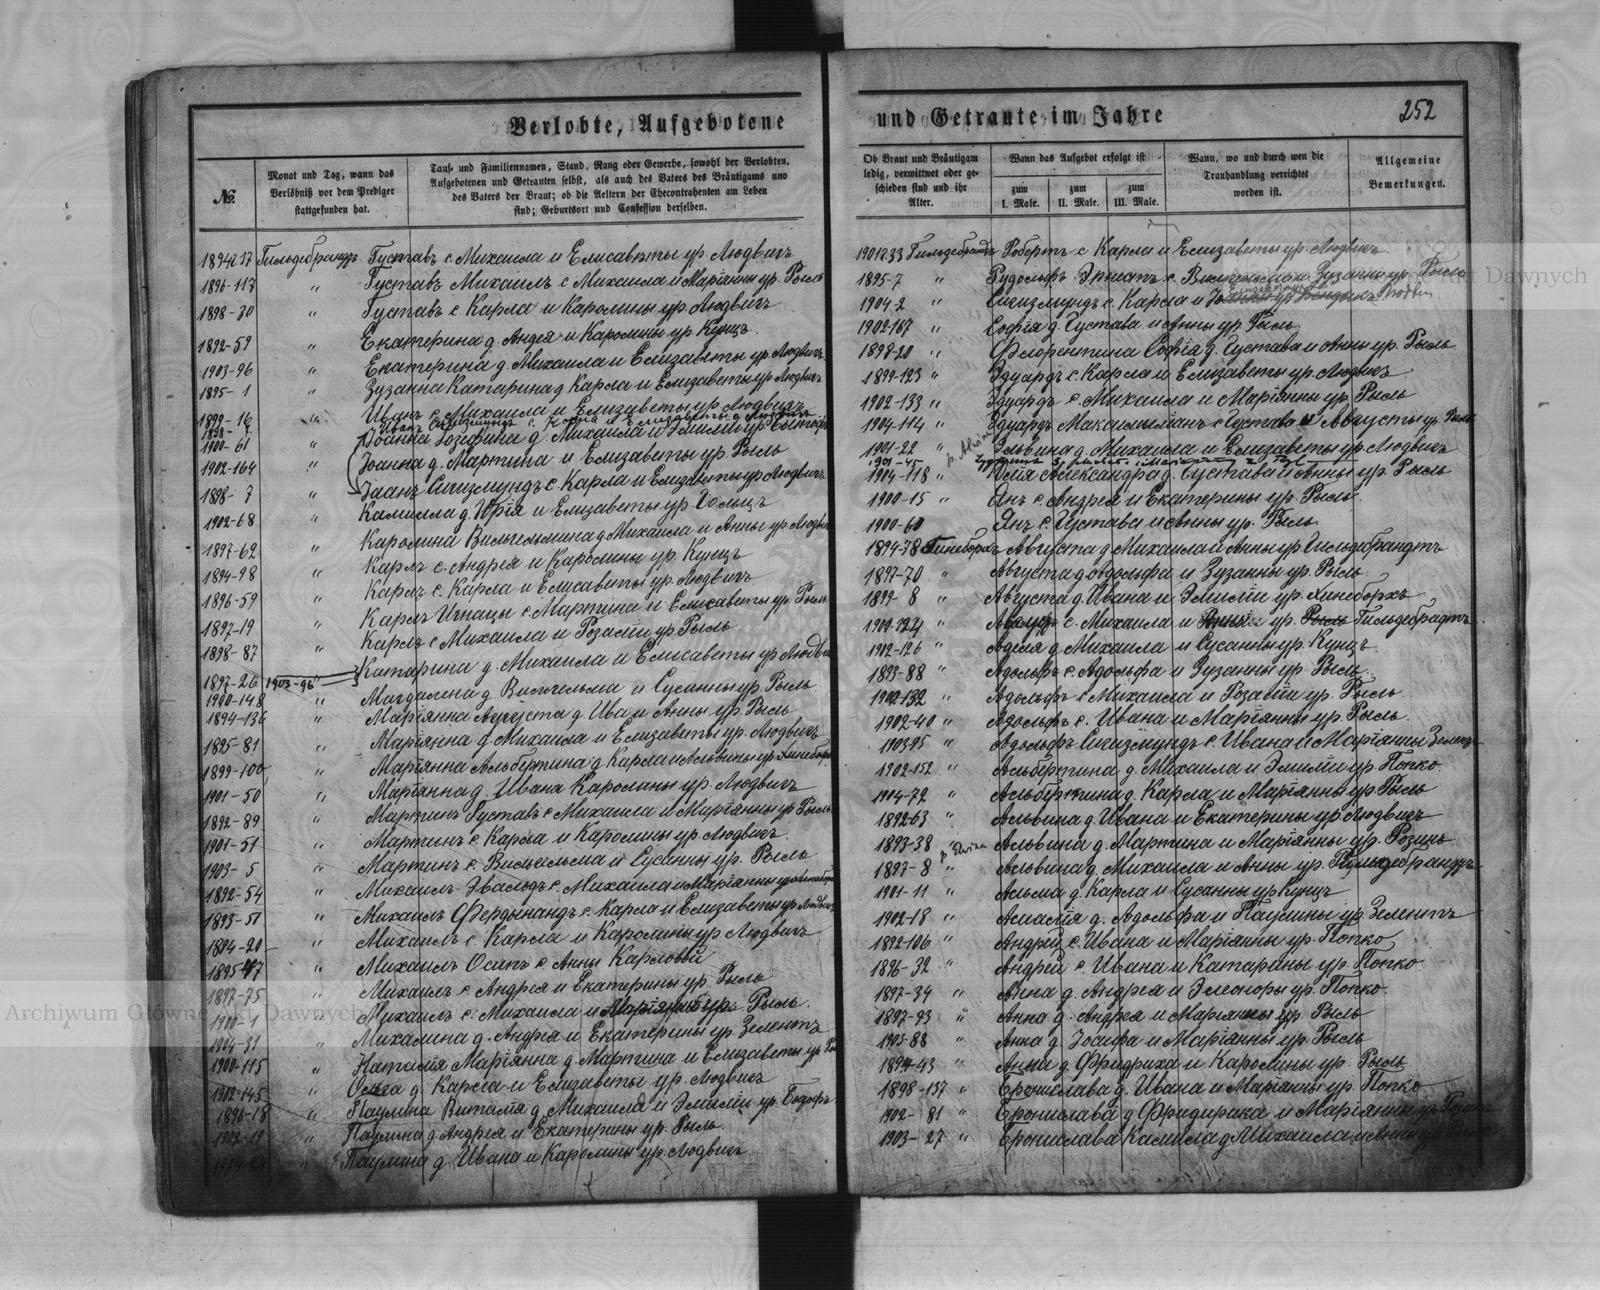 Verlobte, Aufgebotene
№
Monat und Tag, wann das
Verlöbniß vor dem Prediger
stattgefunden hat.
Tauf- und Familiennamen, Stand, Rang oder Gewerbe, sowohl der Verlobten,
Aufgebotenen und Getrauten selbst, als auch des Vaters des Bräutigams und
des Vaters der Braut; ob die Aeltern der Ehecontrahenten am Leben
sind; Geburtsort und Confession derselben.
Гильдебрандъ Густавъ с. Михаила и Елисаветы ур. Людвигъ
1896-117 " Густавъ Михаилъ с Михаила и Маріянны ур. Рыль
1898-30 " Густавъ с Карла и Каролины ур. Людвигъ
1892-59 " Екатерина д. Андея и Каролины ур Кунцъ
1903-96 " Екатерина д. Михаила и Елизаветы ур Людвигъ
1895-1 " Зузанна Катарина д Карла и Елизаветы ур Людвигъ
1899-16 " Иванъ с Михаила и Елизаветы ур Людвигъ
1900-61 " Іоанна Іозефина д. Михаила и Эмиліи ур
1902-164 " Іоанна д. Мартина и Елизаветы ур Рыль
1898-7 " Іоанъ Сигизмундъ с. Карла и Елизаветы ур Людвигъ
1902-68 " Камилла д. Юрія и Елизаветы ур. Гольцъ
1897-62 " Каролина Вильгельмина д Михаила и Анны ур Людвигъ
1894-98 " Карлъ с. Андрея и Каролины ур. Кунцъ
1896-59 " Карлъ с. Карла и Елисаветы ур. Людвигъ
1897-19 " Карлъ Игнацы с. Мартина и Елисаветы ур. Рыль
1898-87 " Карлъ с Михаила и Розаліи ур Рыль
1897-26 1903-96 " Катарина д. Михаила и Елисаветы ур Людвигъ
1900-148 " Магдалена д Вильгельма и Сусанны ур. Рыль
1894-136 " Маріянна Августа д Ива и Анны ур. Рыль
1895-81 " Маріянна д Михаила и Елизаветы ур. Людвигъ
1899-100 " Маріянна Альбертина д Карла и Альвины ур Хинеборхъ
1901-50 " Маріянна д. Ивана Каролины ур. Людвигъ
1892-89 " Мартинъ Густавъ с Михаила и Маріянны ур Рыль
1901-51 " Мартинъ с Карла и Каролины ур Людвигъ
1903-5 " Мартинъ с. Вильгельма и Сусанны ур. Рыль
1892-54 " Михаилъ Эвальдъ с. Михаила и Маріянны ур
1893-51 " Михаилъ Фердынандъ с. Карла и Елизаветы ур Людвигъ
1894-20 " Михаилъ с. Карла и Каролины ур Людвигъ
1895-47 " Михаилъ Осипъ с. Анны Карловой
1897-75 " Михаилъ с Андрея и Екатерины ур. Рыль
1900-1 " Михаилъ с. Михаила и Маріянны ур. Рыль
1904-31 " Михалина д. Андрея и Екатерины ур Зелентъ
1900-115 " Наталія Маріянна д. Мартина и Елизаветы ур
1902-145 " Ольга д. Карла и Елизаветы ур. Людвигъ
1896-18 " Паулина Виталія д Михаила и Эмиліи ур.
1903-19 " Паулина д. Андрея и Екатерины ур. Рыль
" Паулина д. Ивана и Каролины ур Людвигъ
und Getraute im Jahre
252
Ob Braut und Bräutigam
ledig, verwittwet oder ge-
schieden sind und ihr
Alter.
Wann das Aufgebot erfolgt ist
zum
I. Male.
zum
II. Male.
zum
III. Male.
Wann, wo und durch wen die
Trauhandlung verrichtet
worden ist.
Allgemeine
Bemerkungen.
Гильдебрандъ Робертъ с Карла и Елизаветы ур. Людвигъ
1895-7 " Рудольфъ Эрнстъ с Зузанны ур Рыль
1904-2 " Сигизмундъ с. Карла и
1902-167 " Софія д. Густава и Анны ур. Рыль
1898-20 " Флорентина Софія д. Густава и Анны ур. Рыль
1899-123 " Эдуардъ с. Карла и Елизаветы ур. Людвигъ
1902-133 " Эдуардъ с. Михаила и Маріянны ур. Рыль
1904-114 " Эдуардъ Максимилианъ с Густава и Августы ур Рыль
1901-22 " Эльвина д. Михаила и Елизаветы ур. Людвигъ
1904-118 " Юлія Александра д. Густава и Анны ур. Рыль
1900-15 " Янъ с Андрея и Екатерины ур. Рыль
1900-60 Янъ с. Густава и Анны ур. Рыль
1894-78 Гинеборхъ Августа д Михаила и Анны ур Гильдебрандтъ
1897-70 " Августа д Адольфа и Зузанны ур. Рыль
1899-8 " Августа д. Ивана и Эмиліи ур. Хинеборхъ
1901-124 " с. Михаила и ур. Гильдебрандтъ
1902-126 " Аделя д Михаила и Сусанны ур. Кунцъ
1893-88 " Адольфъ с. Адольфа и Зузанны ур. Рыль
1902-132 " Адольфъ с Михаила и Розаліи ур. Рыль
1902-40 " Адольфъ с. Ивана и Маріянны ур. Рыль
1903-95 " Адольфъ Сигизмундъ с. Ивана и Маріянны Зелентъ
1902-152 " Альбертина д. Михаила и Эмиліи ур Попко
1904-72 " Альбертина д. Карла и Маріянны ур. Рыль
1892-63 " Альвина д. Ивана и Екатерины ур Людвигъ
1893-38 " Альвина д. Мартина и Маріянны ур. Розинъ
1897-8 " Альвина д. Михаила и Анны ур. Гильдебрандъ
1901-11 " Альма д. Карла и Сусанны ур Кунцъ
1902-18 " Амалія д. Адольфа и Паулины ур. Зелентъ
1892-106 " Андрей с. Ивана и Маріянны ур. Попко
1896-32 " Андрей с. Ивана и Катарины ур. Попко
1897-34 " Анна д. Андрея и Элеоноры ур. Попко
1897-93 " Анна д. Андрея и Маріянны ур Рыль
1903-88 " Анна д. Іосифа и Маріянны ур. Рыль
1894-43 " Анна д Фридриха и Каролины ур. Рыль
1898-137 " Бронислава д. Ивана и Маріянны ур. Попко
1902-81 " Бронислава д Фридриха и Маріянны ур
1903-27 " Бронислава Камилла д Михаила и
Archiwum Główne Akt Dawnych